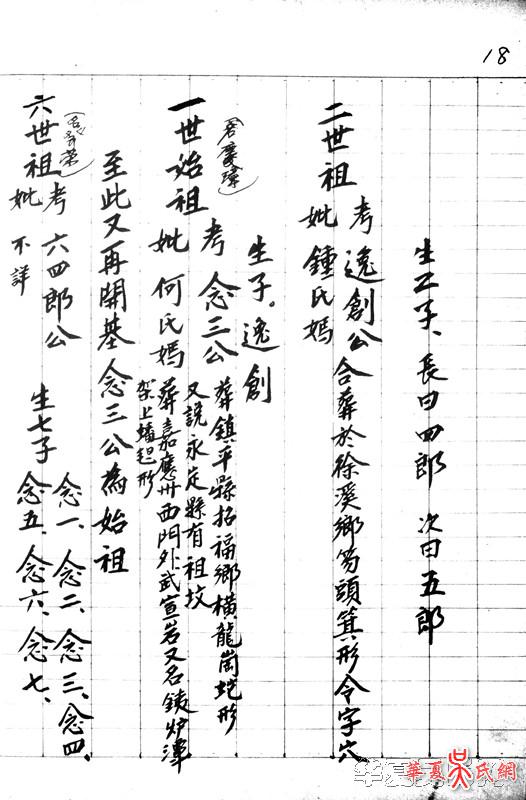 18
六世祖 考 六四郎公
妣 不詳
生七子 念一、念二、念三、念四、
念五、念六、念七、
至此又再開基念三公為始祖
一世始祖 考 念三公 葬鎮平縣招福鄉橫龍崗蛇形
又說永定縣有祖坟
妣 何氏媽 葬嘉應卅西門外武宣岩又名銕炉潭
架上蟠起形
生子。逸創
二世祖 考 逸創公 合葬於徐溪鄉笏頭箕形令字穴
妣 鍾氏媽
生二子、長曰四郎 次曰五郎
華夏吳氏網